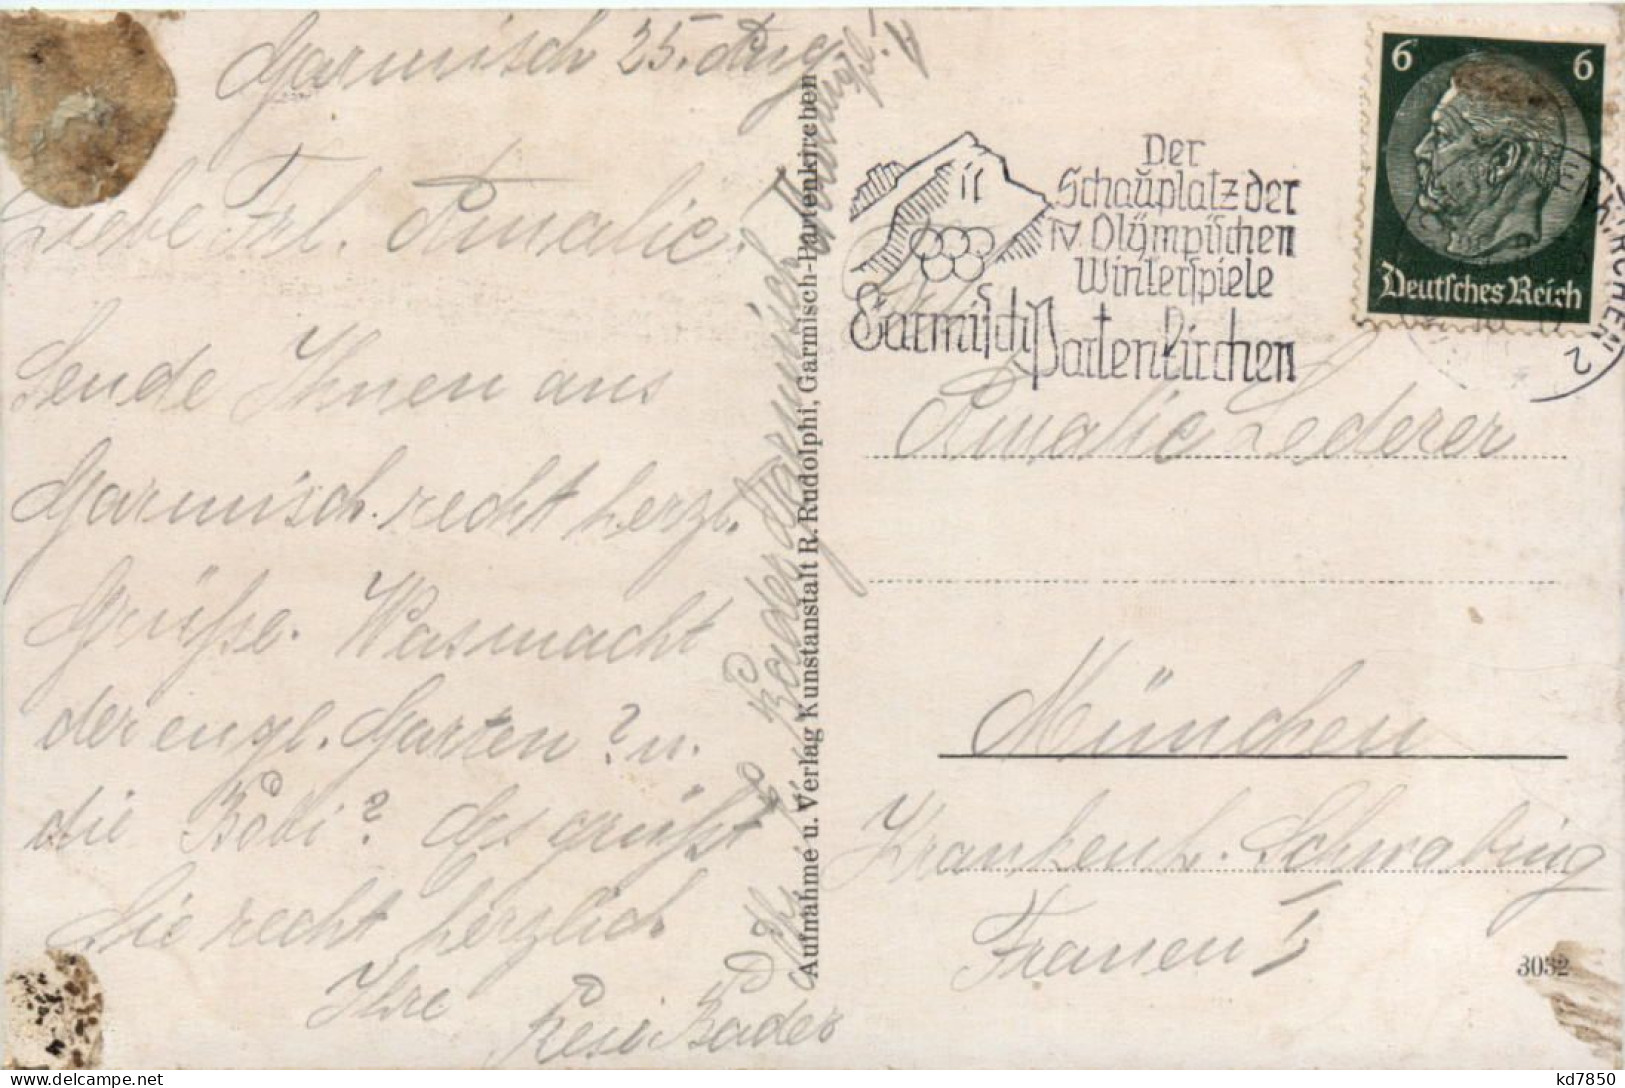 Garmisch 25. Aug.
Liebe Frl. Amalie.
Sende Ihnen aus
Garmisch recht herzl.
Grüße. Was macht
der engl. Garten? u.
die Bobi? Es grüßt
Sie recht herzlich
Ihre
Resi Bader
Bader Garmisch
Aufnahme u. Verlag Kunstanstalt R. Rudolphi, Garmisch-Partenkirchen
Der
Schauplatz der
IV. Olympischen
Winterspiele
Garmisch-Partenkirchen
6 6
Deutsches Reich
Amalie Lederer
München
Krankenh. Schwabing
Frauen I
3032
kd7850